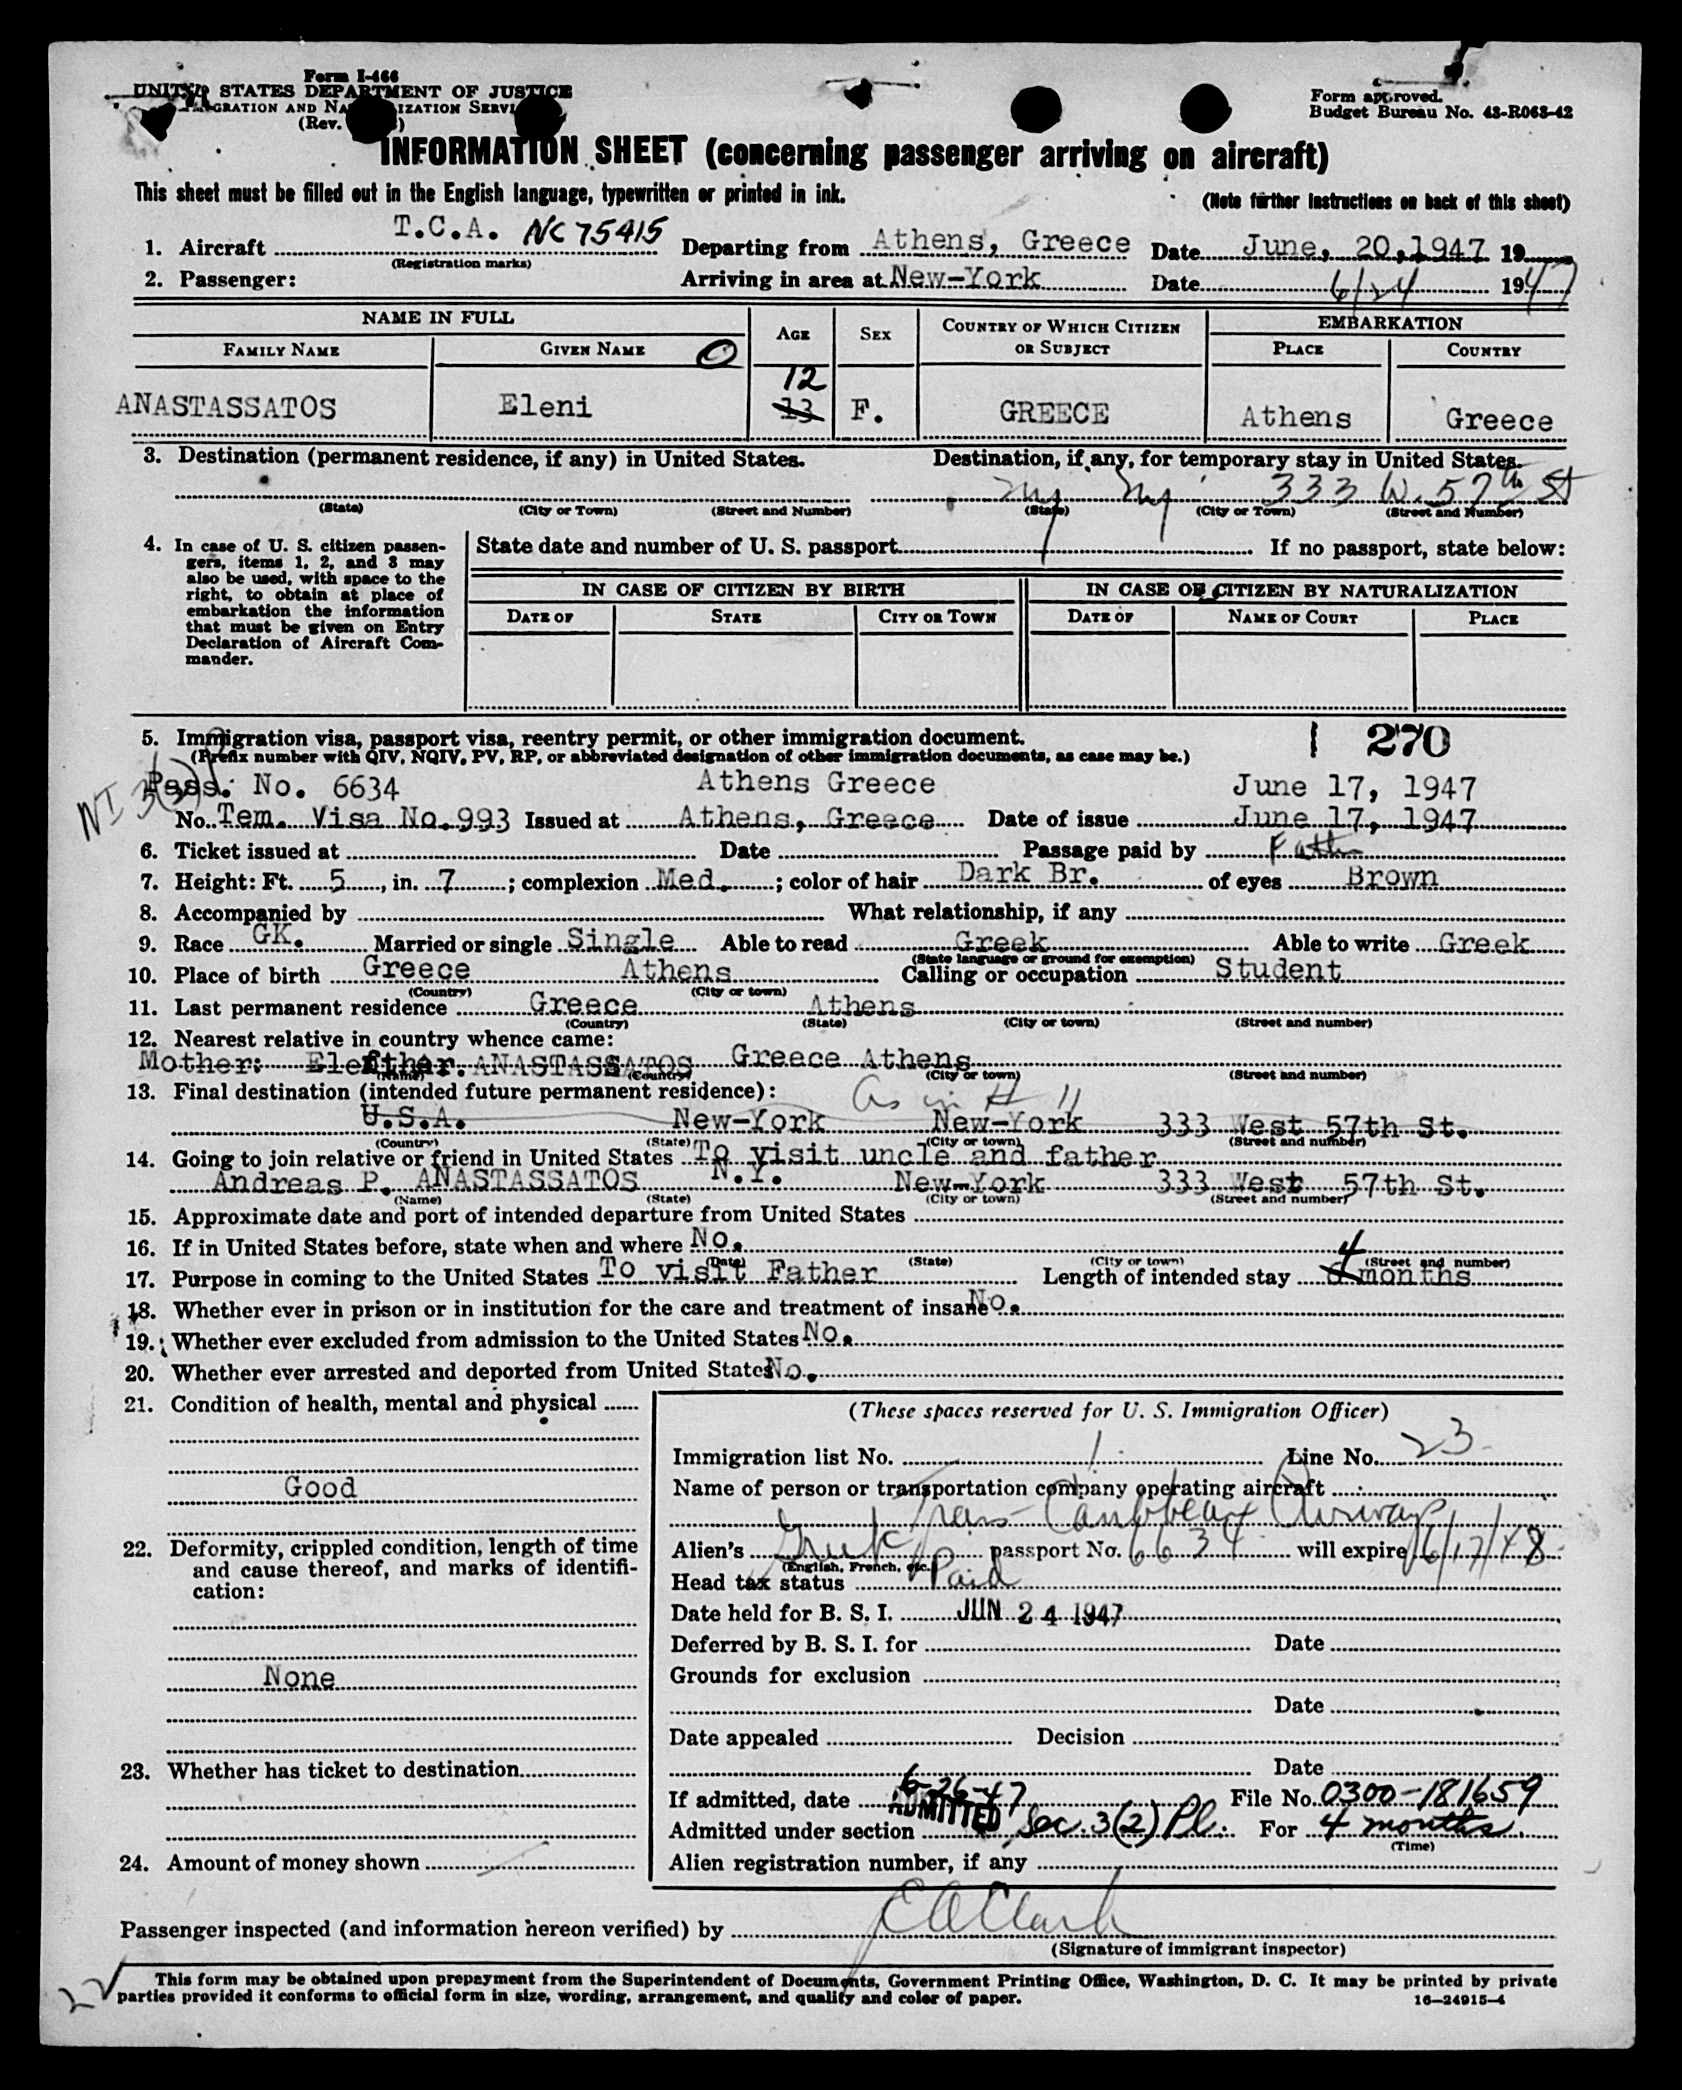 Form I-466
UNITED STATES DEPARTMENT OF JUSTICE
(Rev.
Form approved.
Budget Bureau No. 43-R063-42
INFORMATION SHEET (concerning passenger arriving on aircraft)
This sheet must be filled out in the English language, typewritten or printed in ink.
(Note further instructions on back of this sheet)
1. Aircraft T.C.A. NC 75415 Departing from Athens, Greece Date June, 20, 1947 19
(Registration marks)
2. Passenger: Arriving in area at New-York Date 6/24 1947
NAME IN FULL AGE SEX COUNTRY OF WHICH CITIZEN OR SUBJECT EMBARKATION
FAMILY NAME GIVEN NAME O PLACE COUNTRY
12
ANASTASSATOS Eleni 13 F. GREECE Athens Greece
3. Destination (permanent residence, if any) in United States. Destination, if any, for temporary stay in United States.
NY NY 333 W. 57th St
(State) (City or Town) (Street and Number) (State) (City or Town) (Street and Number)
4. In case of U. S. citizen passengers, items 1, 2, and 3 may also be used, with space to the right, to obtain at place of embarkation the information that must be given on Entry Declaration of Aircraft Commander.
State date and number of U. S. passport If no passport, state below:
IN CASE OF CITIZEN BY BIRTH IN CASE OF CITIZEN BY NATURALIZATION
DATE OF STATE CITY OR TOWN DATE OF NAME OF COURT PLACE
5. Immigration visa, passport visa, reentry permit, or other immigration document. 1 270
(Prefix number with QIV, NQIV, PV, RP, or abbreviated designation of other immigration documents, as case may be.)
NI 3(2)
Pass. No. 6634 Athens Greece June 17, 1947
No. Tem. Visa No. 993 Issued at Athens, Greece Date of issue June 17, 1947
6. Ticket issued at Date Passage paid by Father
7. Height: Ft. 5, in. 7; complexion Med.; color of hair Dark Br. of eyes Brown
8. Accompanied by What relationship, if any
9. Race GK. Married or single Single Able to read Greek Able to write Greek
(State language or ground for exemption)
10. Place of birth Greece Athens Calling or occupation Student
(Country) (City or town)
11. Last permanent residence Greece Athens
(Country) (State) (City or town) (Street and number)
12. Nearest relative in country whence came:
Mother: ANASTASSATOS Greece Athens
(Name) (Country) (City or town) (Street and number)
13. Final destination (intended future permanent residence): As in # 11
U.S.A. New-York New-York 333 West 57th St.
(Country) (State) (City or town) (Street and number)
14. Going to join relative or friend in United States To visit uncle and father
Andreas P. ANASTASSATOS N.Y. New-York 333 West 57th St.
(Name) (State) (City or town) (Street and number)
15. Approximate date and port of intended departure from United States
16. If in United States before, state when and where No.
(Date) (State) (City or town) (Street and number)
17. Purpose in coming to the United States To visit Father Length of intended stay 4 months
18. Whether ever in prison or in institution for the care and treatment of insane No.
19. Whether ever excluded from admission to the United States No.
20. Whether ever arrested and deported from United States No.
21. Condition of health, mental and physical
Good
22. Deformity, crippled condition, length of time and cause thereof, and marks of identification:
None
23. Whether has ticket to destination
24. Amount of money shown
(These spaces reserved for U. S. Immigration Officer)
Immigration list No. 1 Line No. 23
Name of person or transportation company operating aircraft
Trans-Caribbean Airways
Alien's Greek passport No. 6634 will expire 6/17/48
(English, French, etc.)
Head tax status Paid
Date held for B. S. I. JUN 24 1947
Deferred by B. S. I. for Date
Grounds for exclusion
Date
Date appealed Decision
Date
If admitted, date 6-26-47 File No. 0300-181659
Admitted under section ADMITTED Sec. 3(2) Pl. For 4 months.
(Time)
Alien registration number, if any
Passenger inspected (and information hereon verified) by E A Clark
(Signature of immigrant inspector)
22
This form may be obtained upon prepayment from the Superintendent of Documents, Government Printing Office, Washington, D. C. It may be printed by private
parties provided it conforms to official form in size, wording, arrangement, and quality and color of paper.
16—24915-4